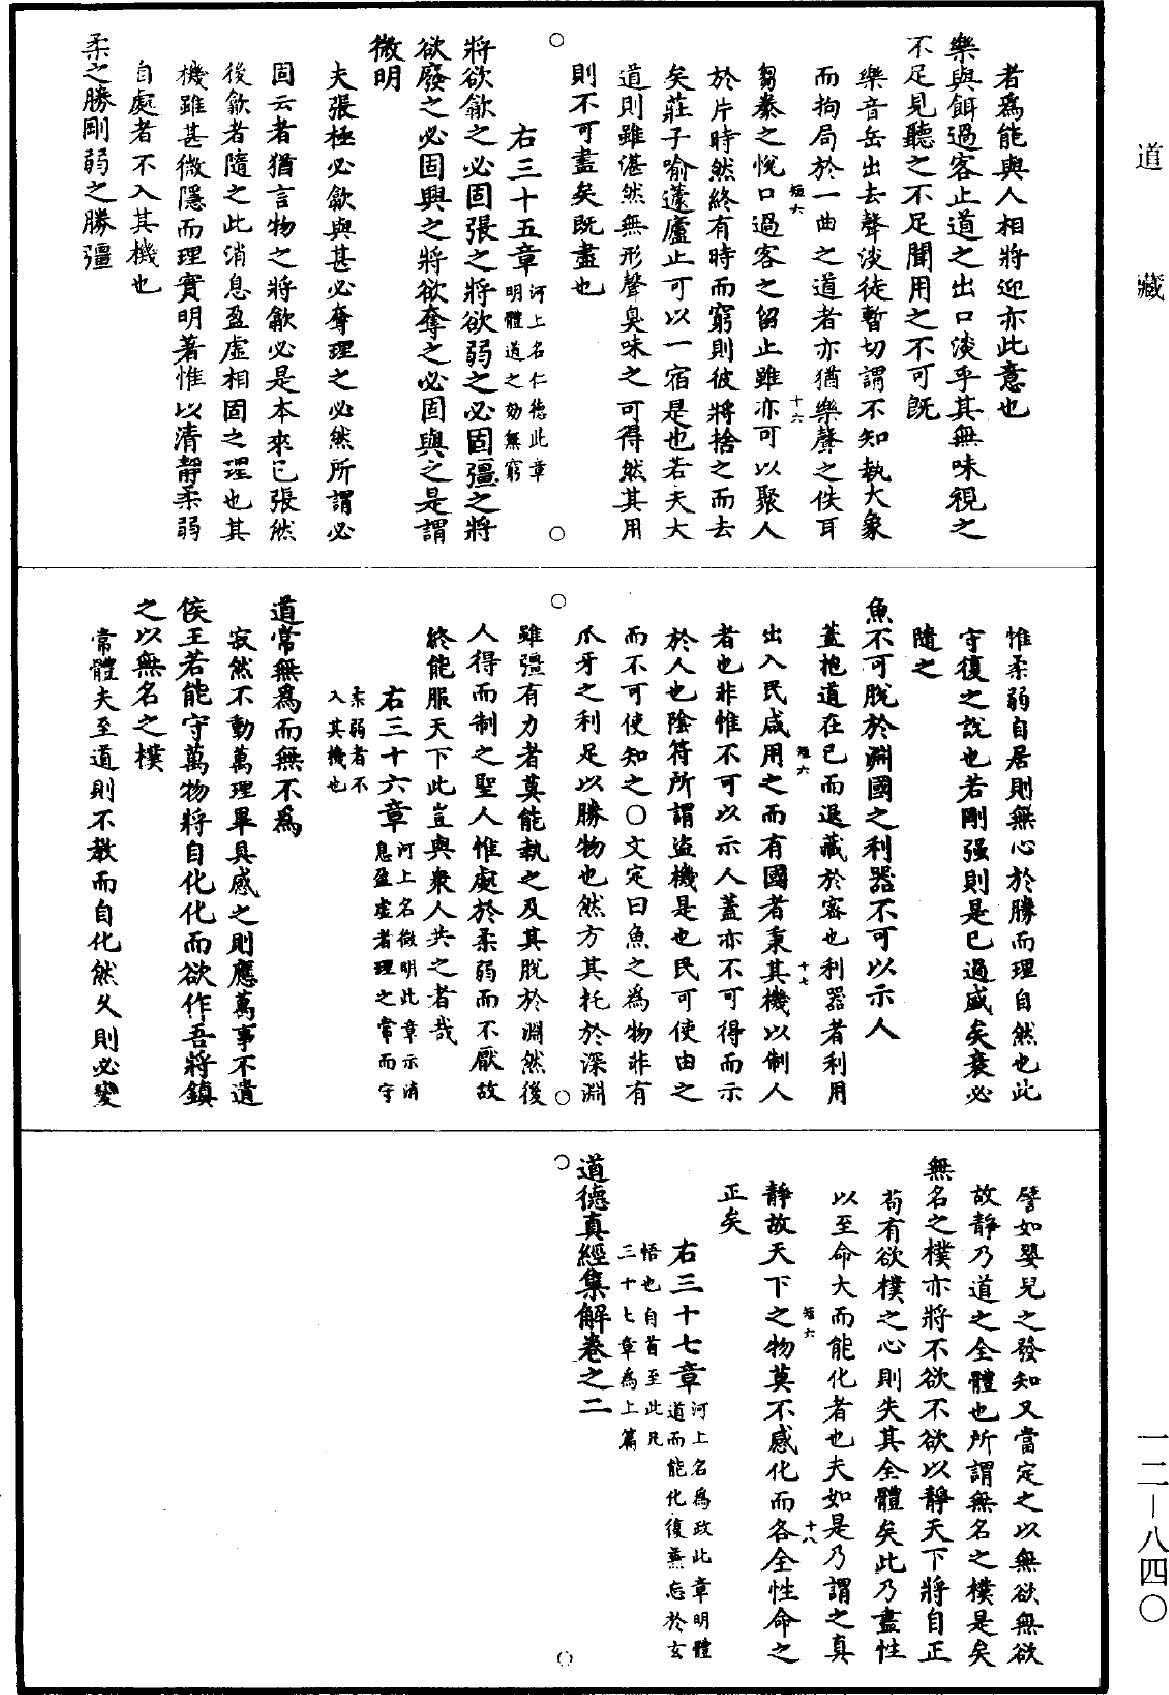 者爲能與人相將迎亦此意也
樂與餌過客止道之出口淡乎其無味視之
不足見聽之不足聞用之不可既
樂音岳出去聲淡徒暫切謂不知執大象
而拘局於一曲之道者亦猶樂聲之佚耳
短六
十六
芻豢之悅口過客之留止雖亦可以聚人
於片時然終有時而窮則彼將捨之而去
矣莊子喻蘧廬止可以一宿是也若夫大
道則雖湛然無形聲臭味之可得然其用
則不可盡矣既盡也
右三十五章
河上名仁德此章
明體道之効無窮
將欲歙之必固張之將欲弱之必固彊之將
欲廢之必固興之將欲奪之必固與之是謂
微明
夫張極必歙與甚必奪理之必然所謂必
固云者猶言物之將歙必是本來已張然
後歙者隨之此消息盈虛相固之理也其
機雖甚微隱而理實明著惟以清靜柔弱
自處者不入其機也
柔之勝剛弱之勝彊
惟柔弱自居則無心於勝而理自然也此
守復之說也若剛强則是已過盛矣衰必
隨之
魚不可脫於淵國之利器不可以示人
蓋抱道在已而退藏於密也利器者利用
出入民咸用之而有國者秉其機以制人
短六
十七
者也非惟不可以示人蓋亦不可得而示
於人也陰符所謂盜機是也民可使由之
而不可使知之○文定曰魚之爲物非有
爪牙之利足以勝物也然方其托於深淵
雖彊有力者莫能執之及其脫於淵然後
人得而制之聖人惟處於柔弱而不厭故
終能服天下此豈與衆人共之者哉
右三十六章
河上名微明此章示消
息盈虛者理之常而守
柔弱者不
入其機也
道常無爲而無不爲
寂然不動萬理畢具感之則應萬事不遺
侯王若能守萬物將自化化而欲作吾將鎮
之以無名之樸
常體夫至道則不教而自化然久則必變
譬如嬰兒之發知又當定之以無欲無欲
故靜乃道之全體也所謂無名之樸是矣
無名之樸亦將不欲不欲以靜天下將自正
苟有欲樸之心則失其全體矣此乃盡性
以至命大而能化者也夫如是乃謂之真
短六
十八
靜故天下之物莫不感化而各全性命之
正矣
右三十七章
河上名爲政此章明體
道而能化復無忘於玄
悟也自首至此凡
三十七章爲上篇
道德真經集解卷之二
道藏
一二—八四〇